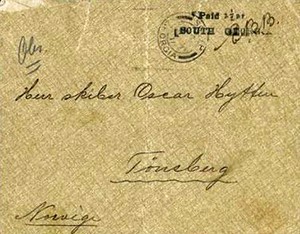 Paid 2½d
SOUTH GEO
Obs.
Herr skiber Oscar Hytten
Tönsberg
Norvige